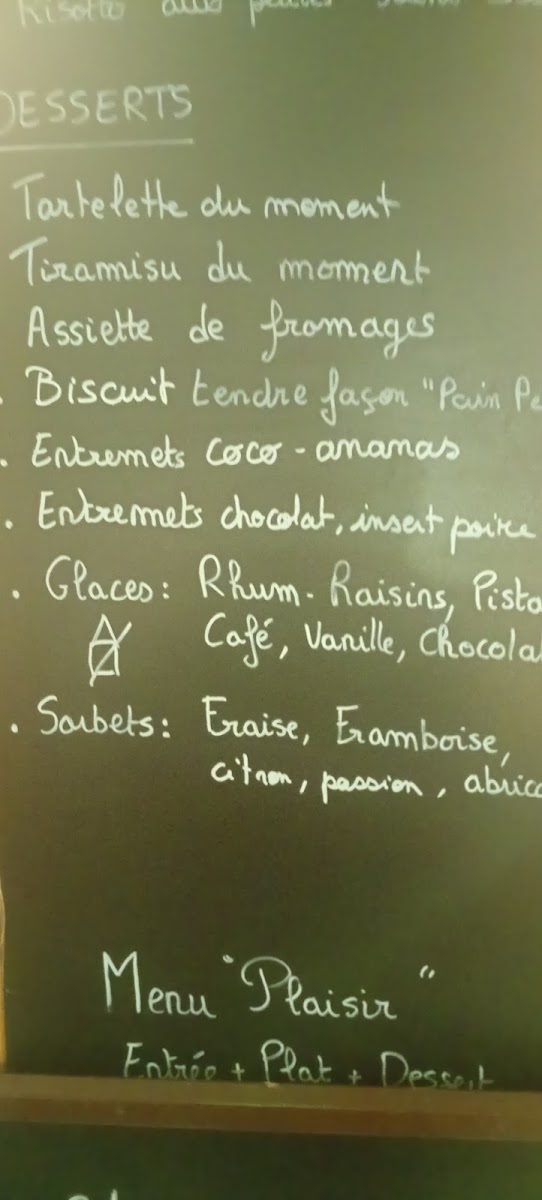 Risotto aux petits
DESSERTS
Tartelette du moment
Tiramisu du moment
Assiette de fromages
. Biscuit tendre façon "Pain Pe
. Entremets coco - ananas
. Entremets chocolat, insert poire
. Glaces: Rhum-Raisins, Pista
Café, Vanille, Chocola
. Sorbets: Fraise, Framboise,
citron, passion, abrico
Menu "Plaisir"
Entrée + Plat + Dessert